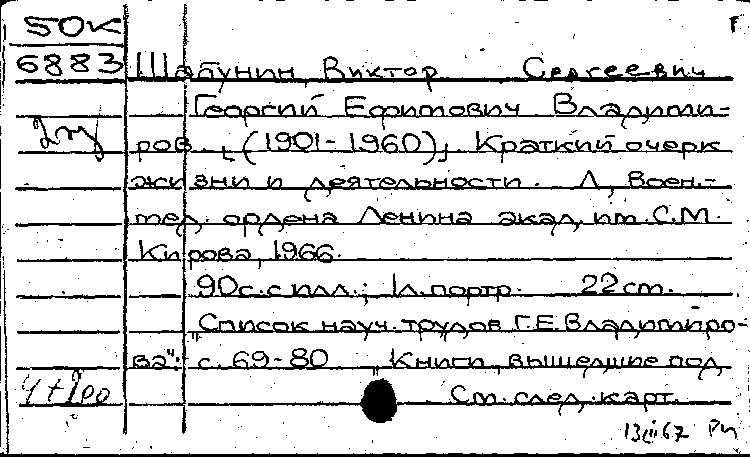 50к
6883 Шапунин, Виктор Сергеевич
Георгий Ефимович Владими-
ров. (1901-1960). Краткий очерк
жизни и деятельности. Л., Воен.-
мед. ордена Ленина акад. им. С.М.
Кирова, 1966.
90с. с илл.; 1 л. портр. 22 cm.
"Список науч. трудов Г.Е. Владимиро-
ва": с. 69-80 Книги, вышедшие под
См. след. карт.
13 III 67